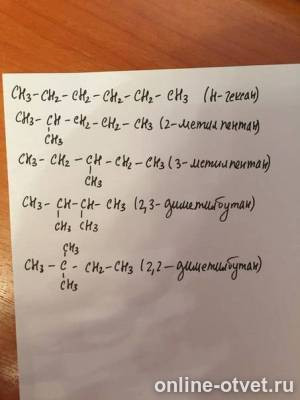 CH3-CH2-CH2-CH2-CH2-CH3 (н-гексан)
CH3-CH-CH2-CH2-CH3 (2-метилпентан)
CH3
CH3-CH2-CH-CH2-CH3 (3-метилпентан)
CH3
CH3-CH-CH-CH3 (2,3-диметилбутан)
CH3 CH3
CH3
CH3-C-CH2-CH3 (2,2-диметилбутан)
CH3
online-otvet.ru